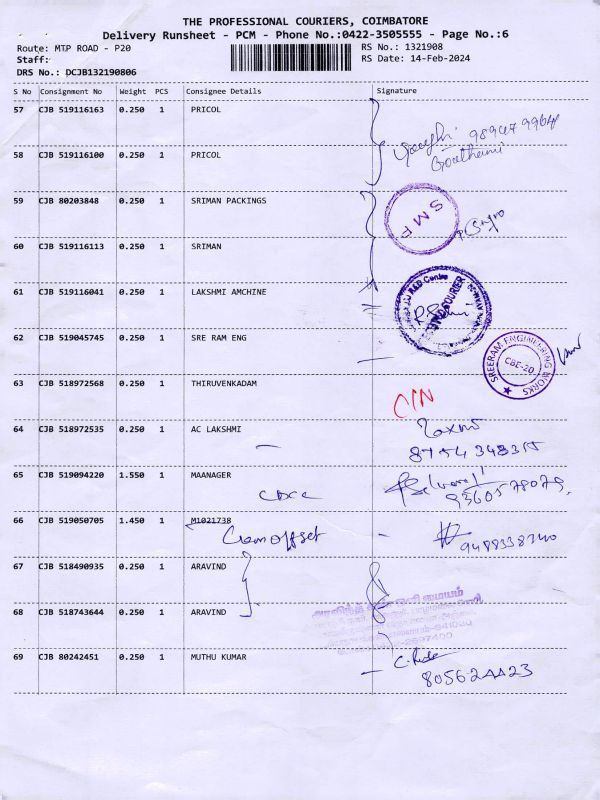 THE PROFESSIONAL COURIERS, COIMBATORE
Delivery Runsheet - PCM - Phone No.:0422-3505555 - Page No.:6
Route: MTP ROAD - P20
RS No.: 1321908
Staff:
RS Date: 14-Feb-2024
DRS No.: DCJB132190806
S No Consignment No Weight PCS Consignee Details Signature
57 CJB 519116163 0.250 1 PRICOL
98947 9964
58 CJB 519116100 0.250 1 PRICOL
Gouthami
59 CJB 80203848 0.250 1 SRIMAN PACKINGS
SMF
60 CJB 519116113 0.250 1 SRIMAN
61 CJB 519116041 0.250 1 LAKSHMI AMCHINE
62 CJB 519045745 0.250 1 SRE RAM ENG
SREERAM ENGINEERING WORKS
CBE-20
63 CJB 518972568 0.250 1 THIRUVENKADAM
C/N
64 CJB 518972535 0.250 1 AC LAKSHMI
65 CJB 519094220 1.550 1 MAANAGER
93605 78079
66 CJB 519050705 1.450 1 M1021738
9488338740
67 CJB 518490935 0.250 1 ARAVIND
68 CJB 518743644 0.250 1 ARAVIND
69 CJB 80242451 0.250 1 MUTHU KUMAR
8056244423